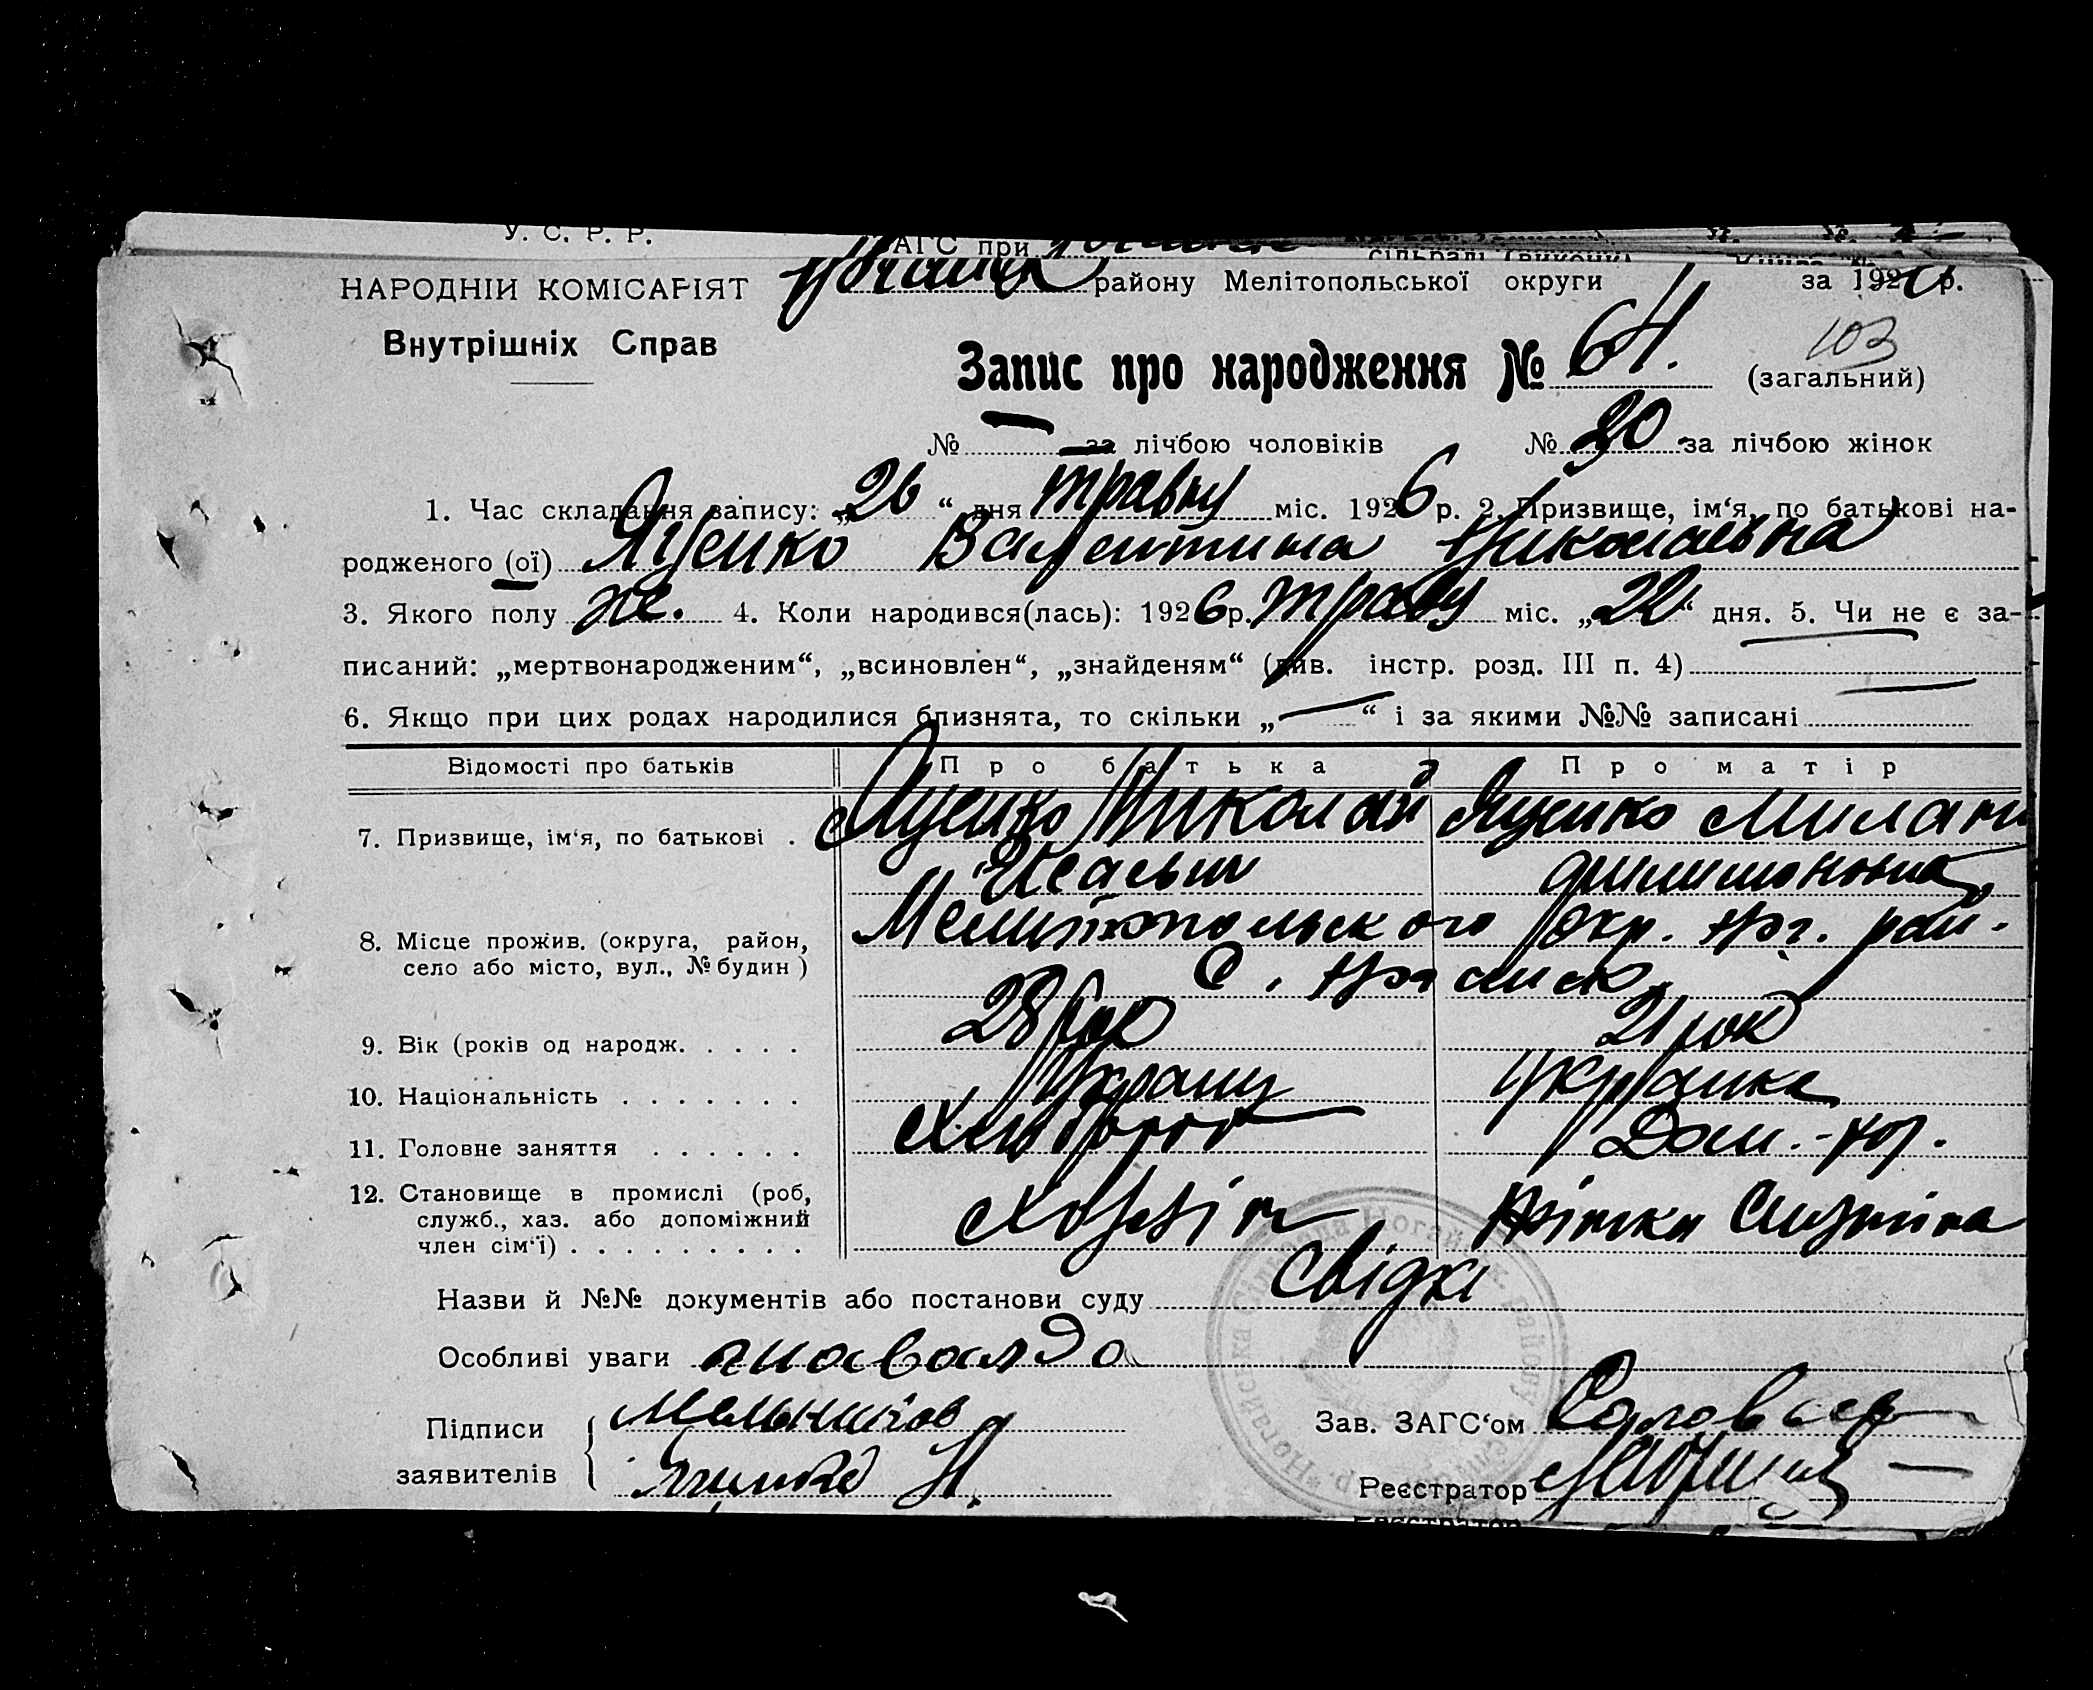 У. С. Р. Р.
ЗАГС при
НАРОДНІЙ КОМІСАРІЯТ
району Мелітопольської округи за 1926 р.
Внутрішніх Справ
103
Запис про народження № 64. (загальний)
№ — за лічбою чоловіків № 30 за лічбою жінок
1. Час складання запису: „26“ дня травня міс. 1926 р. 2. Призвище, ім‘я, по батькові на-
родженого (ої) Яценко Валентина Николаевна
3. Якого полу же. 4. Коли народився(лась): 1926 р. травня міс. „22“ дня. 5. Чи не є за-
писаний: „мертвонародженим“, „всиновлен“, „знайденям“ (див. інстр. розд. III п. 4)
6. Якщо при цих родах народилися близнята, то скільки „—“ і за якими №№ записані
Відомості про батьків Про батька Про матір
7. Призвище, ім‘я, по батькові . Яценко Николай Яценко Милания
Исаевич Филимоновна
8. Місце прожив. (округа, район, Мелитопольского окр. Ног. рай.
село або місто, вул., № будин) с. Ногайск
9. Вік (років од народж. . . . . 28 рок 21 рок
10. Національність . . . . . . . Украинец Украинка
11. Головне заняття . . . . . . Хлибороб Дом.-хоз.
12. Становище в промислі (роб,
служб., хаз. або допоміжний
член сім‘ї) . . . . . . . . . Хозяін
Назви й №№ документів або постанови суду Свідки
Особливі уваги
Підписи Мельников Зав. ЗАГС‘ом Соловьев
заявителів Яценко Н. Реєстратор
Реєстратор